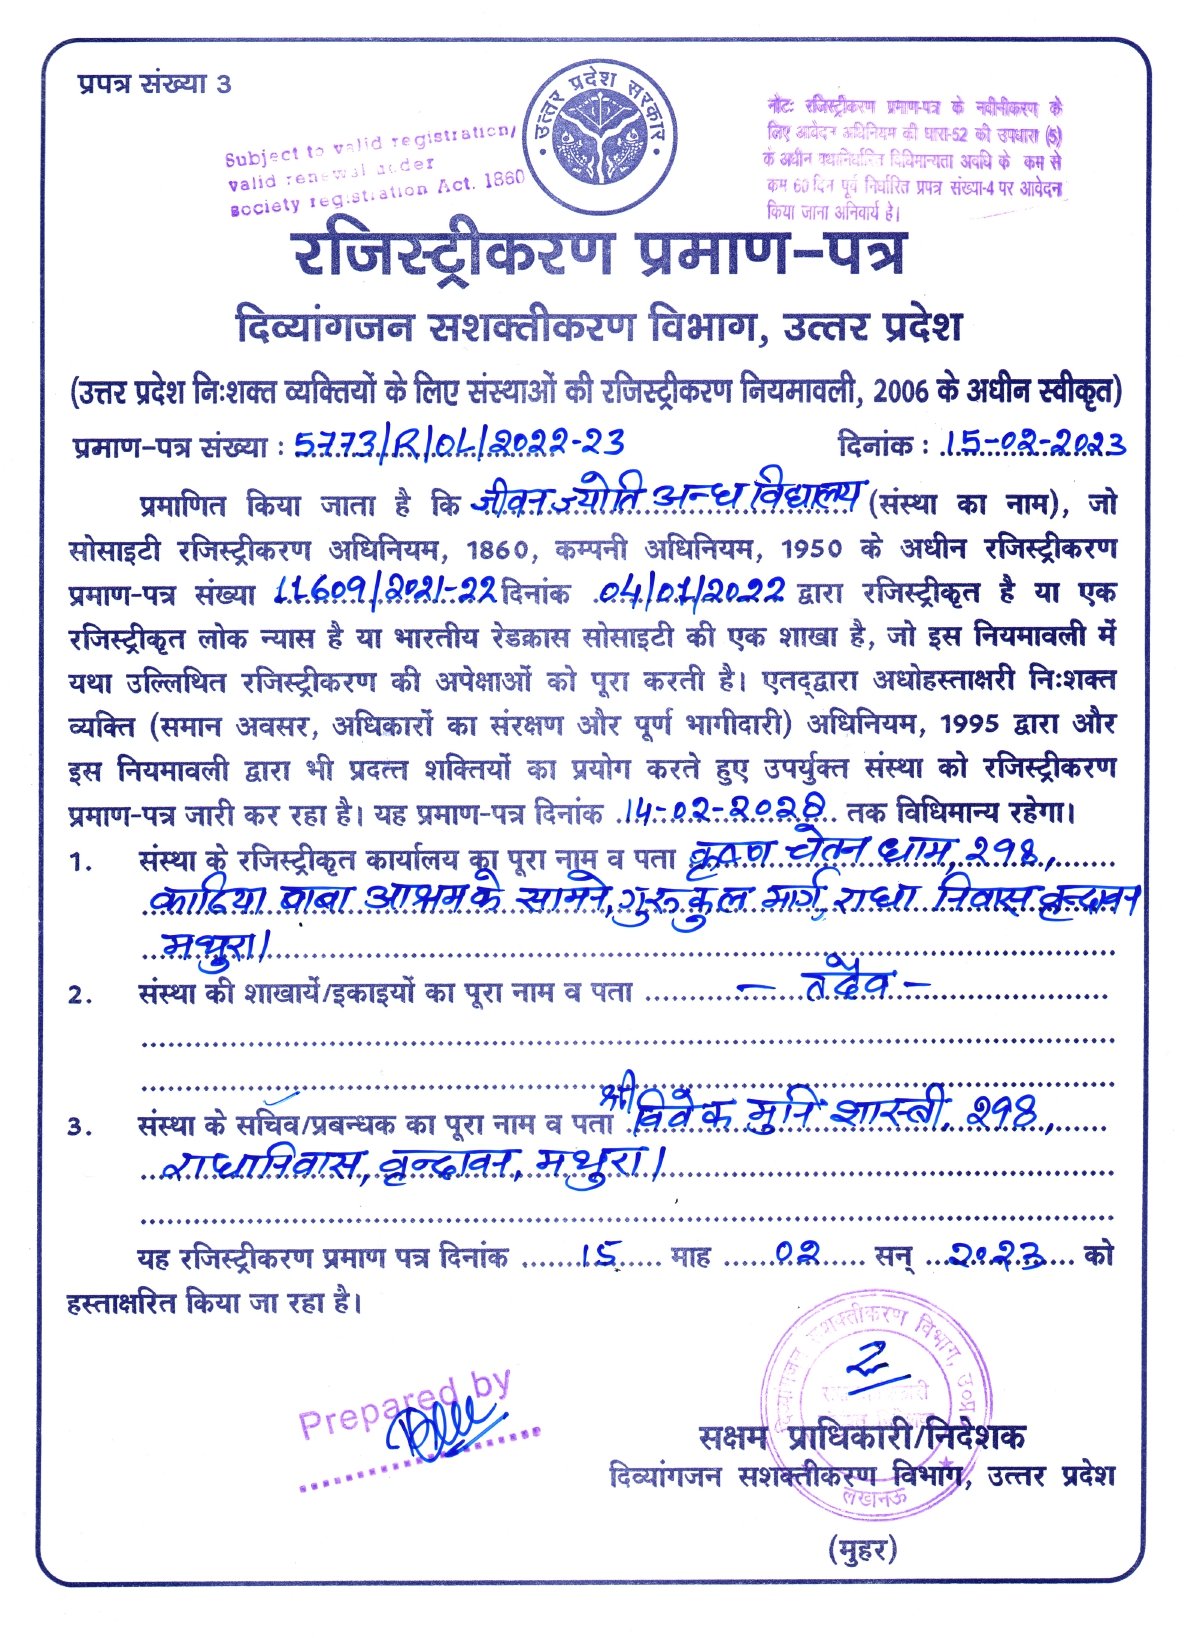 प्रपत्र संख्या 3
उत्तर प्रदेश सरकार
Subject to valid registration/
valid renewal under
society registration Act. 1860
नोटः रजिस्ट्रीकरण प्रमाण-पत्र के नवीनीकरण के
लिए आवेदन अधिनियम की धारा-52 की उपधारा (5)
के अधीन यथानिर्धारित विधिमान्यता अवधि के कम से
कम 60 दिन पूर्व निर्धारित प्रपत्र संख्या-4 पर आवेदन
किया जाना अनिवार्य है।
रजिस्ट्रीकरण प्रमाण-पत्र
दिव्यांगजन सशक्तीकरण विभाग, उत्तर प्रदेश
(उत्तर प्रदेश निःशक्त व्यक्तियों के लिए संस्थाओं की रजिस्ट्रीकरण नियमावली, 2006 के अधीन स्वीकृत)
प्रमाण-पत्र संख्या : 5773/R/OL/2022-23 दिनांक : 15-02-2023
प्रमाणित किया जाता है कि जीवन ज्योति अन्ध विद्यालय (संस्था का नाम), जो
सोसाइटी रजिस्ट्रीकरण अधिनियम, 1860, कम्पनी अधिनियम, 1950 के अधीन रजिस्ट्रीकरण
प्रमाण-पत्र संख्या 11609/2021-22 दिनांक 04/01/2022 द्वारा रजिस्ट्रीकृत है या एक
रजिस्ट्रीकृत लोक न्यास है या भारतीय रेडक्रास सोसाइटी की एक शाखा है, जो इस नियमावली में
यथा उल्लिथित रजिस्ट्रीकरण की अपेक्षाओं को पूरा करती है। एतद्द्वारा अधोहस्ताक्षरी निःशक्त
व्यक्ति (समान अवसर, अधिकारों का संरक्षण और पूर्ण भागीदारी) अधिनियम, 1995 द्वारा और
इस नियमावली द्वारा भी प्रदत्त शक्तियों का प्रयोग करते हुए उपर्युक्त संस्था को रजिस्ट्रीकरण
प्रमाण-पत्र जारी कर रहा है। यह प्रमाण-पत्र दिनांक 14-02-2028 तक विधिमान्य रहेगा।
1. संस्था के रजिस्ट्रीकृत कार्यालय का पूरा नाम व पता कृष्ण चेतन धाम, २९४,
काठिया बाबा आश्रम के सामने, गुरुकुल मार्ग, राधा निवास वृन्दावन
मथुरा।
2. संस्था की शाखायें/इकाइयों का पूरा नाम व पता - तदैव -
3. संस्था के सचिव/प्रबन्धक का पूरा नाम व पता श्री विवेक मुनि शास्त्री, २९४,
राधानिवास, वृन्दावन, मथुरा।
यह रजिस्ट्रीकरण प्रमाण पत्र दिनांक 15 माह 02 सन् 2023 को
हस्ताक्षरित किया जा रहा है।
दिव्यांगजन सशक्तीकरण विभाग, उ०प्र०
Prepared by
सक्षम प्राधिकारी/निदेशक
दिव्यांगजन सशक्तीकरण विभाग, उत्तर प्रदेश
लखनऊ
(मुहर)